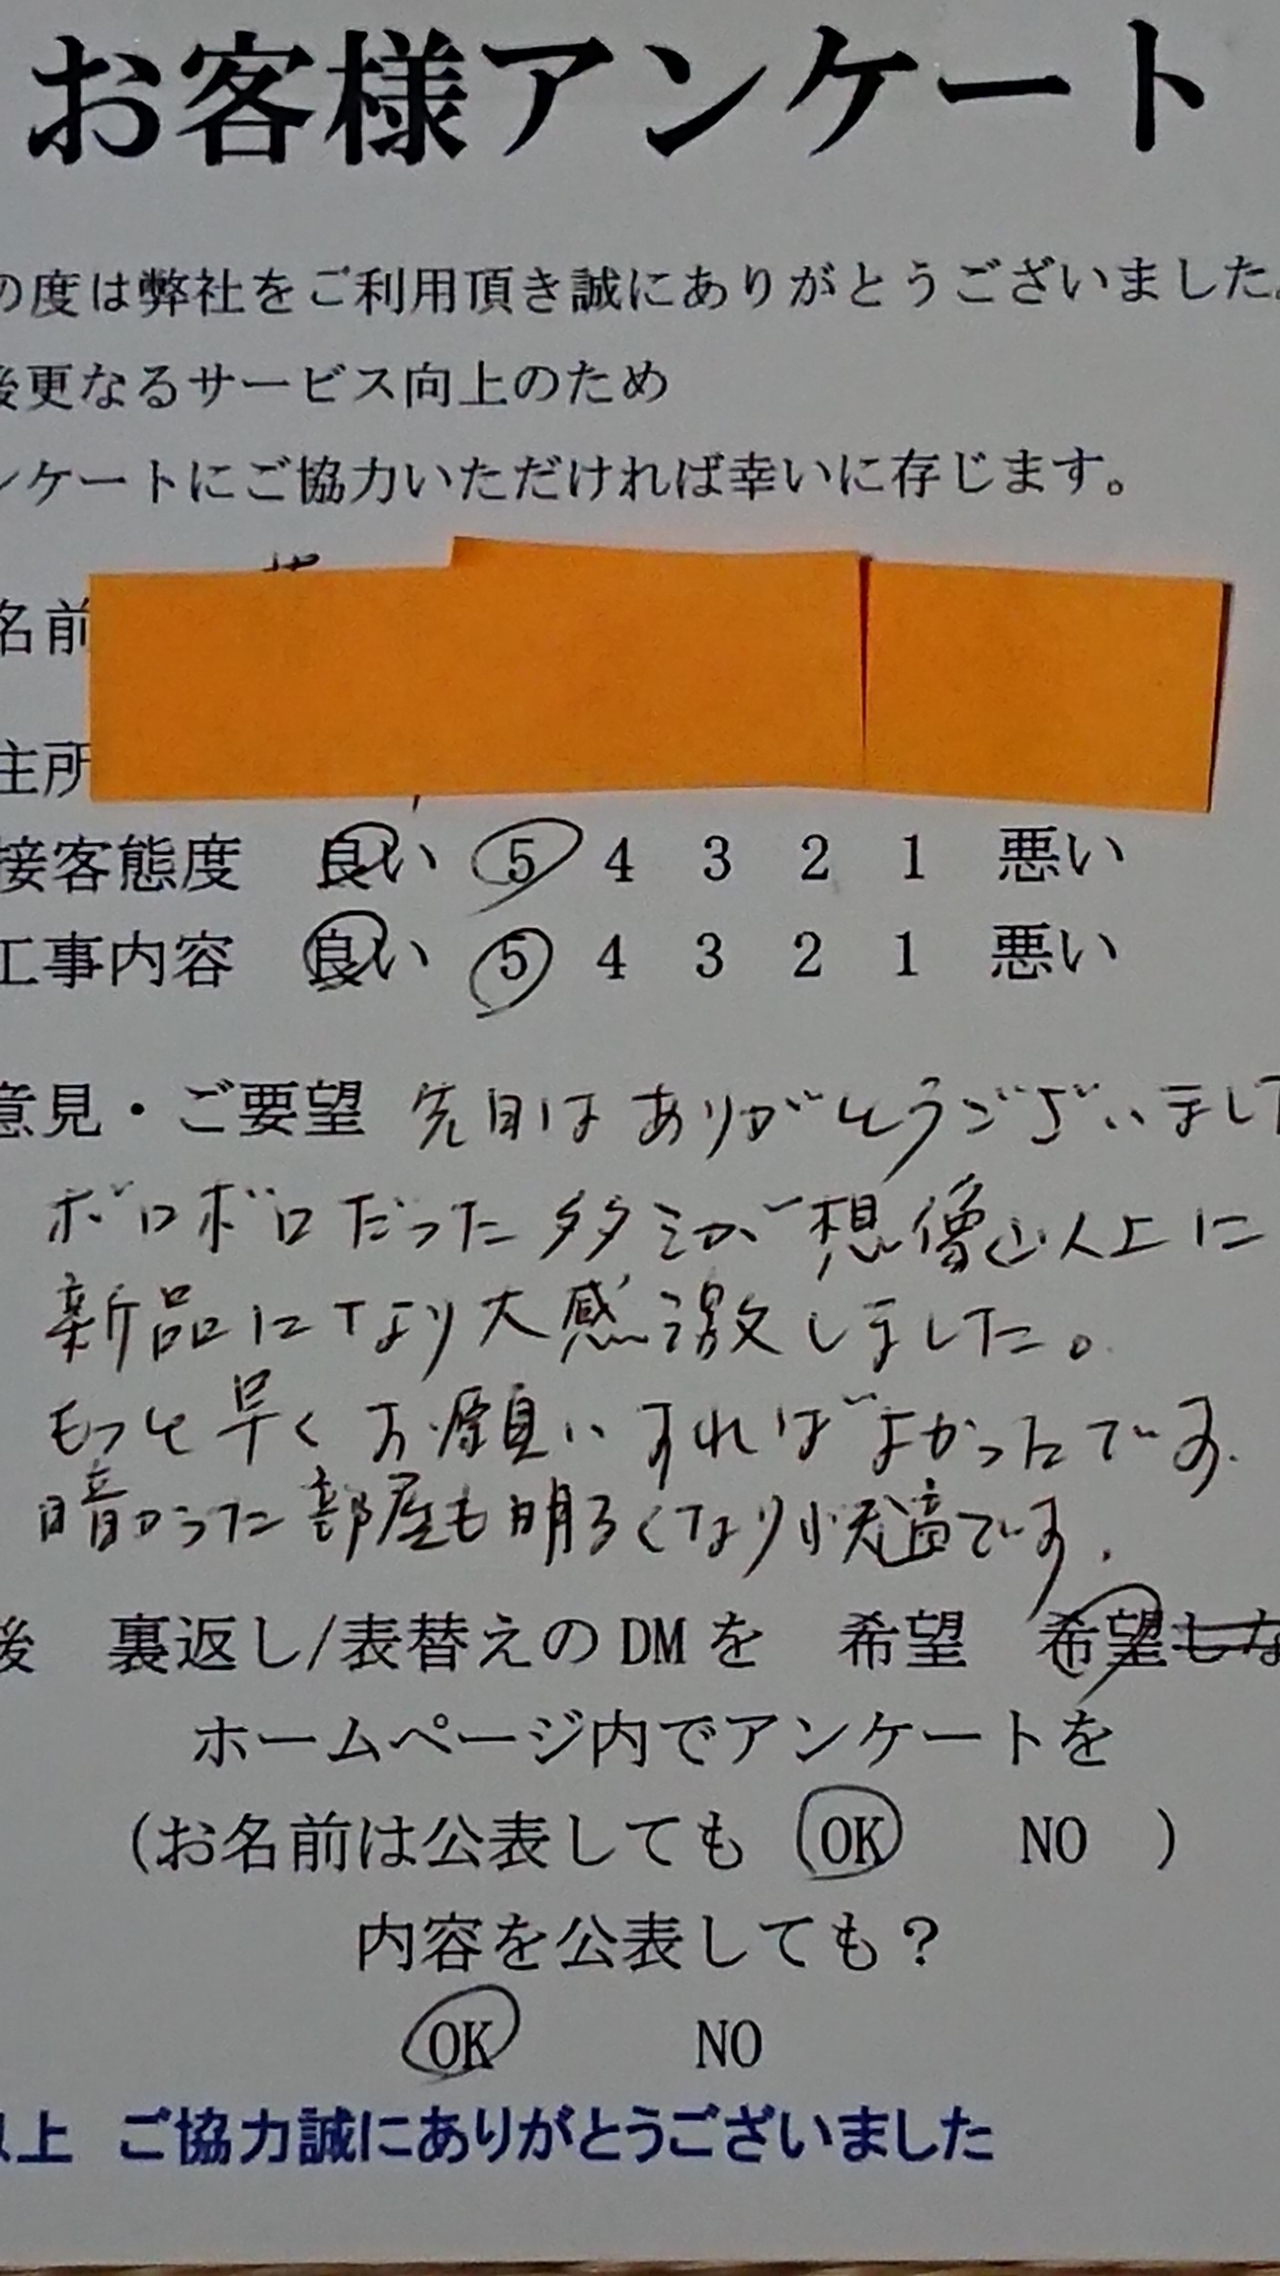 お客様アンケート
の度は弊社をご利用頂き誠にありがとうございました。
後更なるサービス向上のため
ンケートにご協力いただければ幸いに存じます。
名前
住所
接客態度 良い 5 4 3 2 1 悪い
工事内容 良い 5 4 3 2 1 悪い
意見・ご要望 先日はありがとうございまして
ボロボロだったタタミが想像以上に
新品になり大感激しました。
もっと早くお願いすればよかったです.
暗かった部屋も明るくなり快適です.
後 裏返し/表替えのDMを 希望 希望しな
ホームページ内でアンケートを
(お名前は公表しても OK NO )
内容を公表しても？
OK NO
以上 ご協力誠にありがとうございました